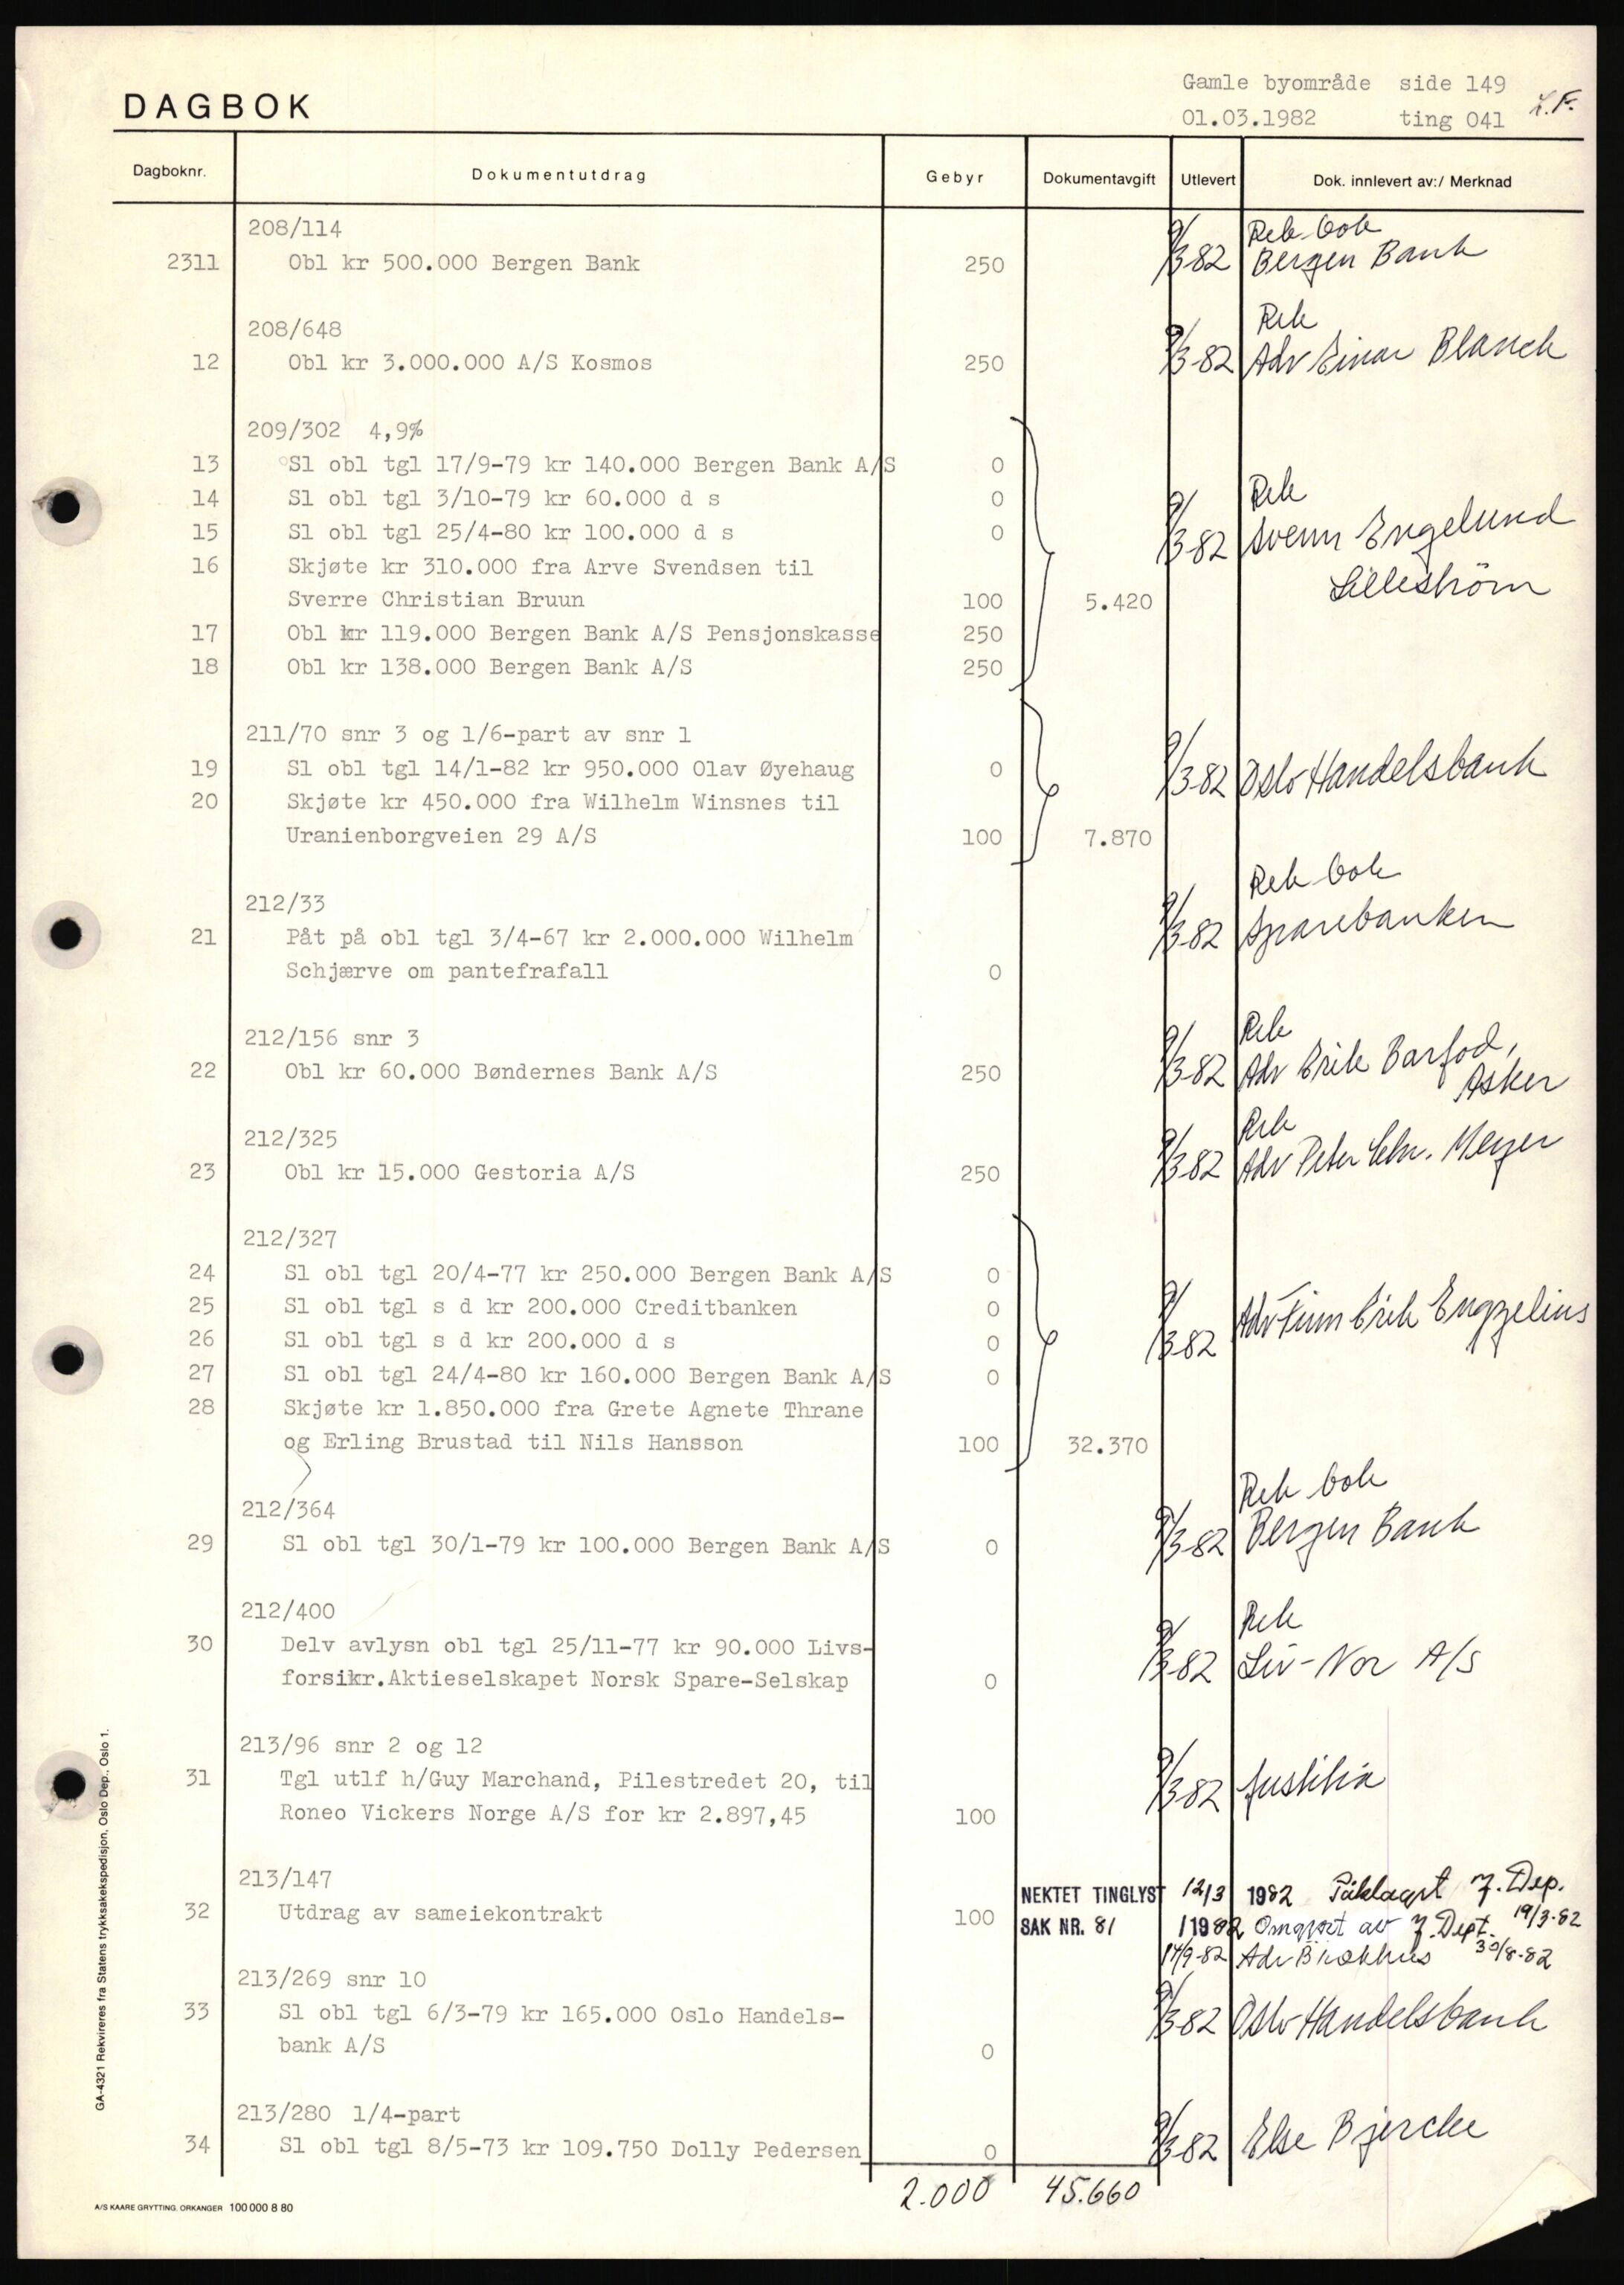 Gamle byområde side 149
DAGBOK
01.03.1982 ting 041
Dagboknr. Dokumentutdrag Gebyr Dokumentavgift Utlevert Dok. innlevert av:/ Merknad
208/114 Rek bok
2311 Obl kr 500.000 Bergen Bank 250 9/3-82 Bergen Bank
208/648 Rek
12 Obl kr 3.000.000 A/S Kosmos 250 9/3-82 Adv Einar Blanck
209/302 4,9%
13 Sl obl tgl 17/9-79 kr 140.000 Bergen Bank A/S 0
14 Sl obl tgl 3/10-79 kr 60.000 d s 0 Rek
15 Sl obl tgl 25/4-80 kr 100.000 d s 0 9/3-82 Svenn Engelund
16 Skjøte kr 310.000 fra Arve Svendsen til Lillestrøm
Sverre Christian Bruun 100 5.420
17 Obl kr 119.000 Bergen Bank A/S Pensjonskasse 250
18 Obl kr 138.000 Bergen Bank A/S 250
211/70 snr 3 og 1/6-part av snr 1
19 Sl obl tgl 14/1-82 kr 950.000 Olav Øyehaug 0 9/3-82 Oslo Handelsbank
20 Skjøte kr 450.000 fra Wilhelm Winsnes til
Uranienborgveien 29 A/S 100 7.870
212/33 Rek bok
21 Påt på obl tgl 3/4-67 kr 2.000.000 Wilhelm 9/3-82 Sparebanken
Schjærve om pantefrafall 0
212/156 snr 3 Rek
22 Obl kr 60.000 Bøndernes Bank A/S 250 9/3-82 Adv Erik Barfod,
Asker
212/325 Rek
23 Obl kr 15.000 Gestoria A/S 250 9/3-82 Adv Peter Chr. Meyer
212/327
24 Sl obl tgl 20/4-77 kr 250.000 Bergen Bank A/S 0
25 Sl obl tgl s d kr 200.000 Creditbanken 0
26 Sl obl tgl s d kr 200.000 d s 0 9/3-82 Adv Finn Erik Engzelius
27 Sl obl tgl 24/4-80 kr 160.000 Bergen Bank A/S 0
28 Skjøte kr 1.850.000 fra Grete Agnete Thrane
og Erling Brustad til Nils Hansson 100 32.370
212/364 Rek bok
29 Sl obl tgl 30/1-79 kr 100.000 Bergen Bank A/S 0 9/3-82 Bergen Bank
212/400 Rek
30 Delv avlysn obl tgl 25/11-77 kr 90.000 Livs- 9/3-82 Liv-Nor A/S
forsikr.Aktieselskapet Norsk Spare-Selskap 0
213/96 snr 2 og 12
31 Tgl utlf h/Guy Marchand, Pilestredet 20, til 9/3-82 Justitia
Roneo Vickers Norge A/S for kr 2.897,45 100
213/147 NEKTET TINGLYST 12/3 1982 Påklaget J. Dep. 19/3-82
32 Utdrag av sameiekontrakt 100 SAK NR. 81 /1982 Omgjort av J. Dept. 30/8-82
17/9-82 Adv
213/269 snr 10
33 Sl obl tgl 6/3-79 kr 165.000 Oslo Handels- 9/3-82 Oslo Handelsbank
bank A/S 0
213/280 1/4-part
34 Sl obl tgl 8/5-73 kr 109.750 Dolly Pedersen 0 9/3-82 Else Bjercke
2.000 45.660
GA-4321 Rekvireres fra Statens trykksakekspedisjon, Oslo Dep., Oslo 1.
A/S KAARE GRYTTING. ORKANGER 100 000 8 80